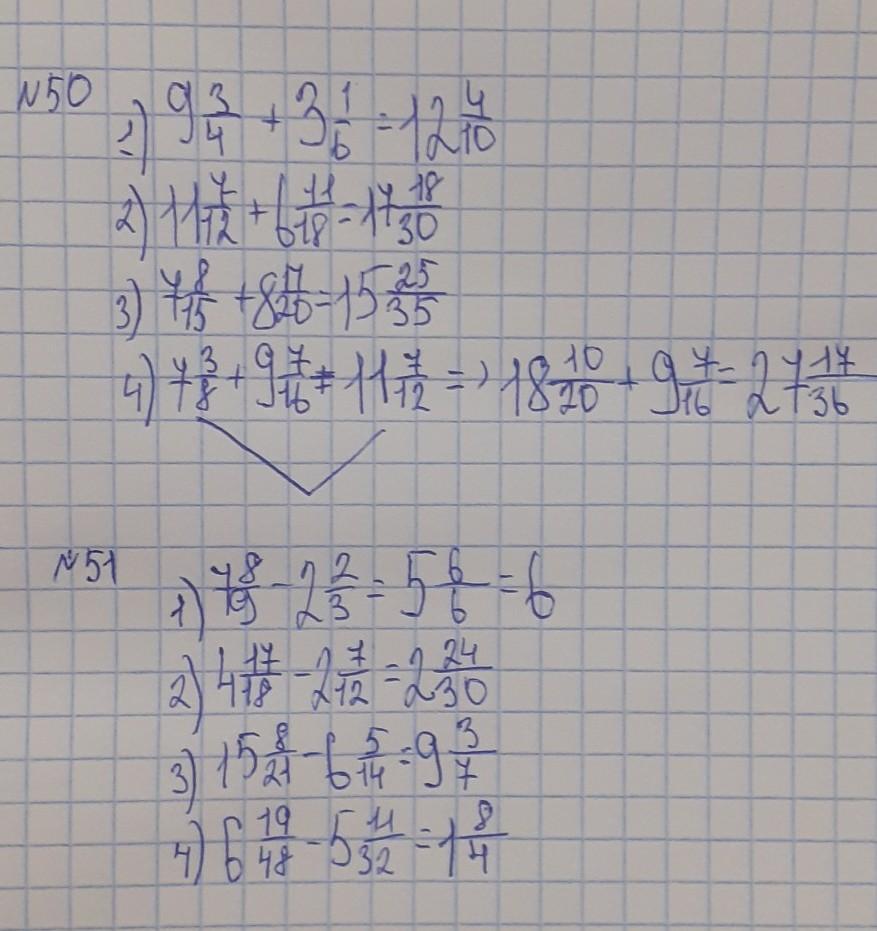 №50
1) 9 3/4 + 3 1/6 = 12 4/10
2) 11 7/12 + 6 11/18 = 17 18/30
3) 7 8/15 + 8 17/20 = 15 25/35
4) 7 3/8 + 9 7/16 + 11 7/12 => 18 10/20 + 9 7/16 = 27 17/36
№51
1) 7 8/9 - 2 2/3 = 5 6/6 = 6
2) 4 17/18 - 2 7/12 = 2 24/30
3) 15 8/21 - 6 5/14 = 9 3/7
4) 6 19/48 - 5 11/32 = 1 8/4